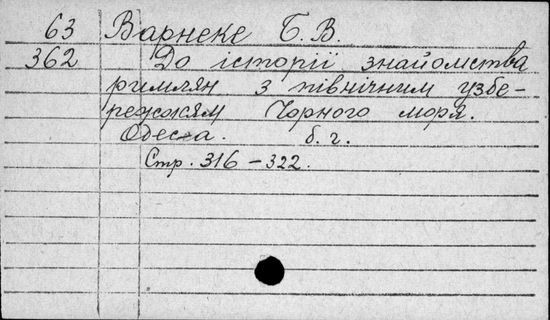 63 Варнеке Б. В.
362 До історії знайомства
римлян з північним узбе-
режжям Чорного моря.
Одесса. б. г.
Стр. 316 – 322.